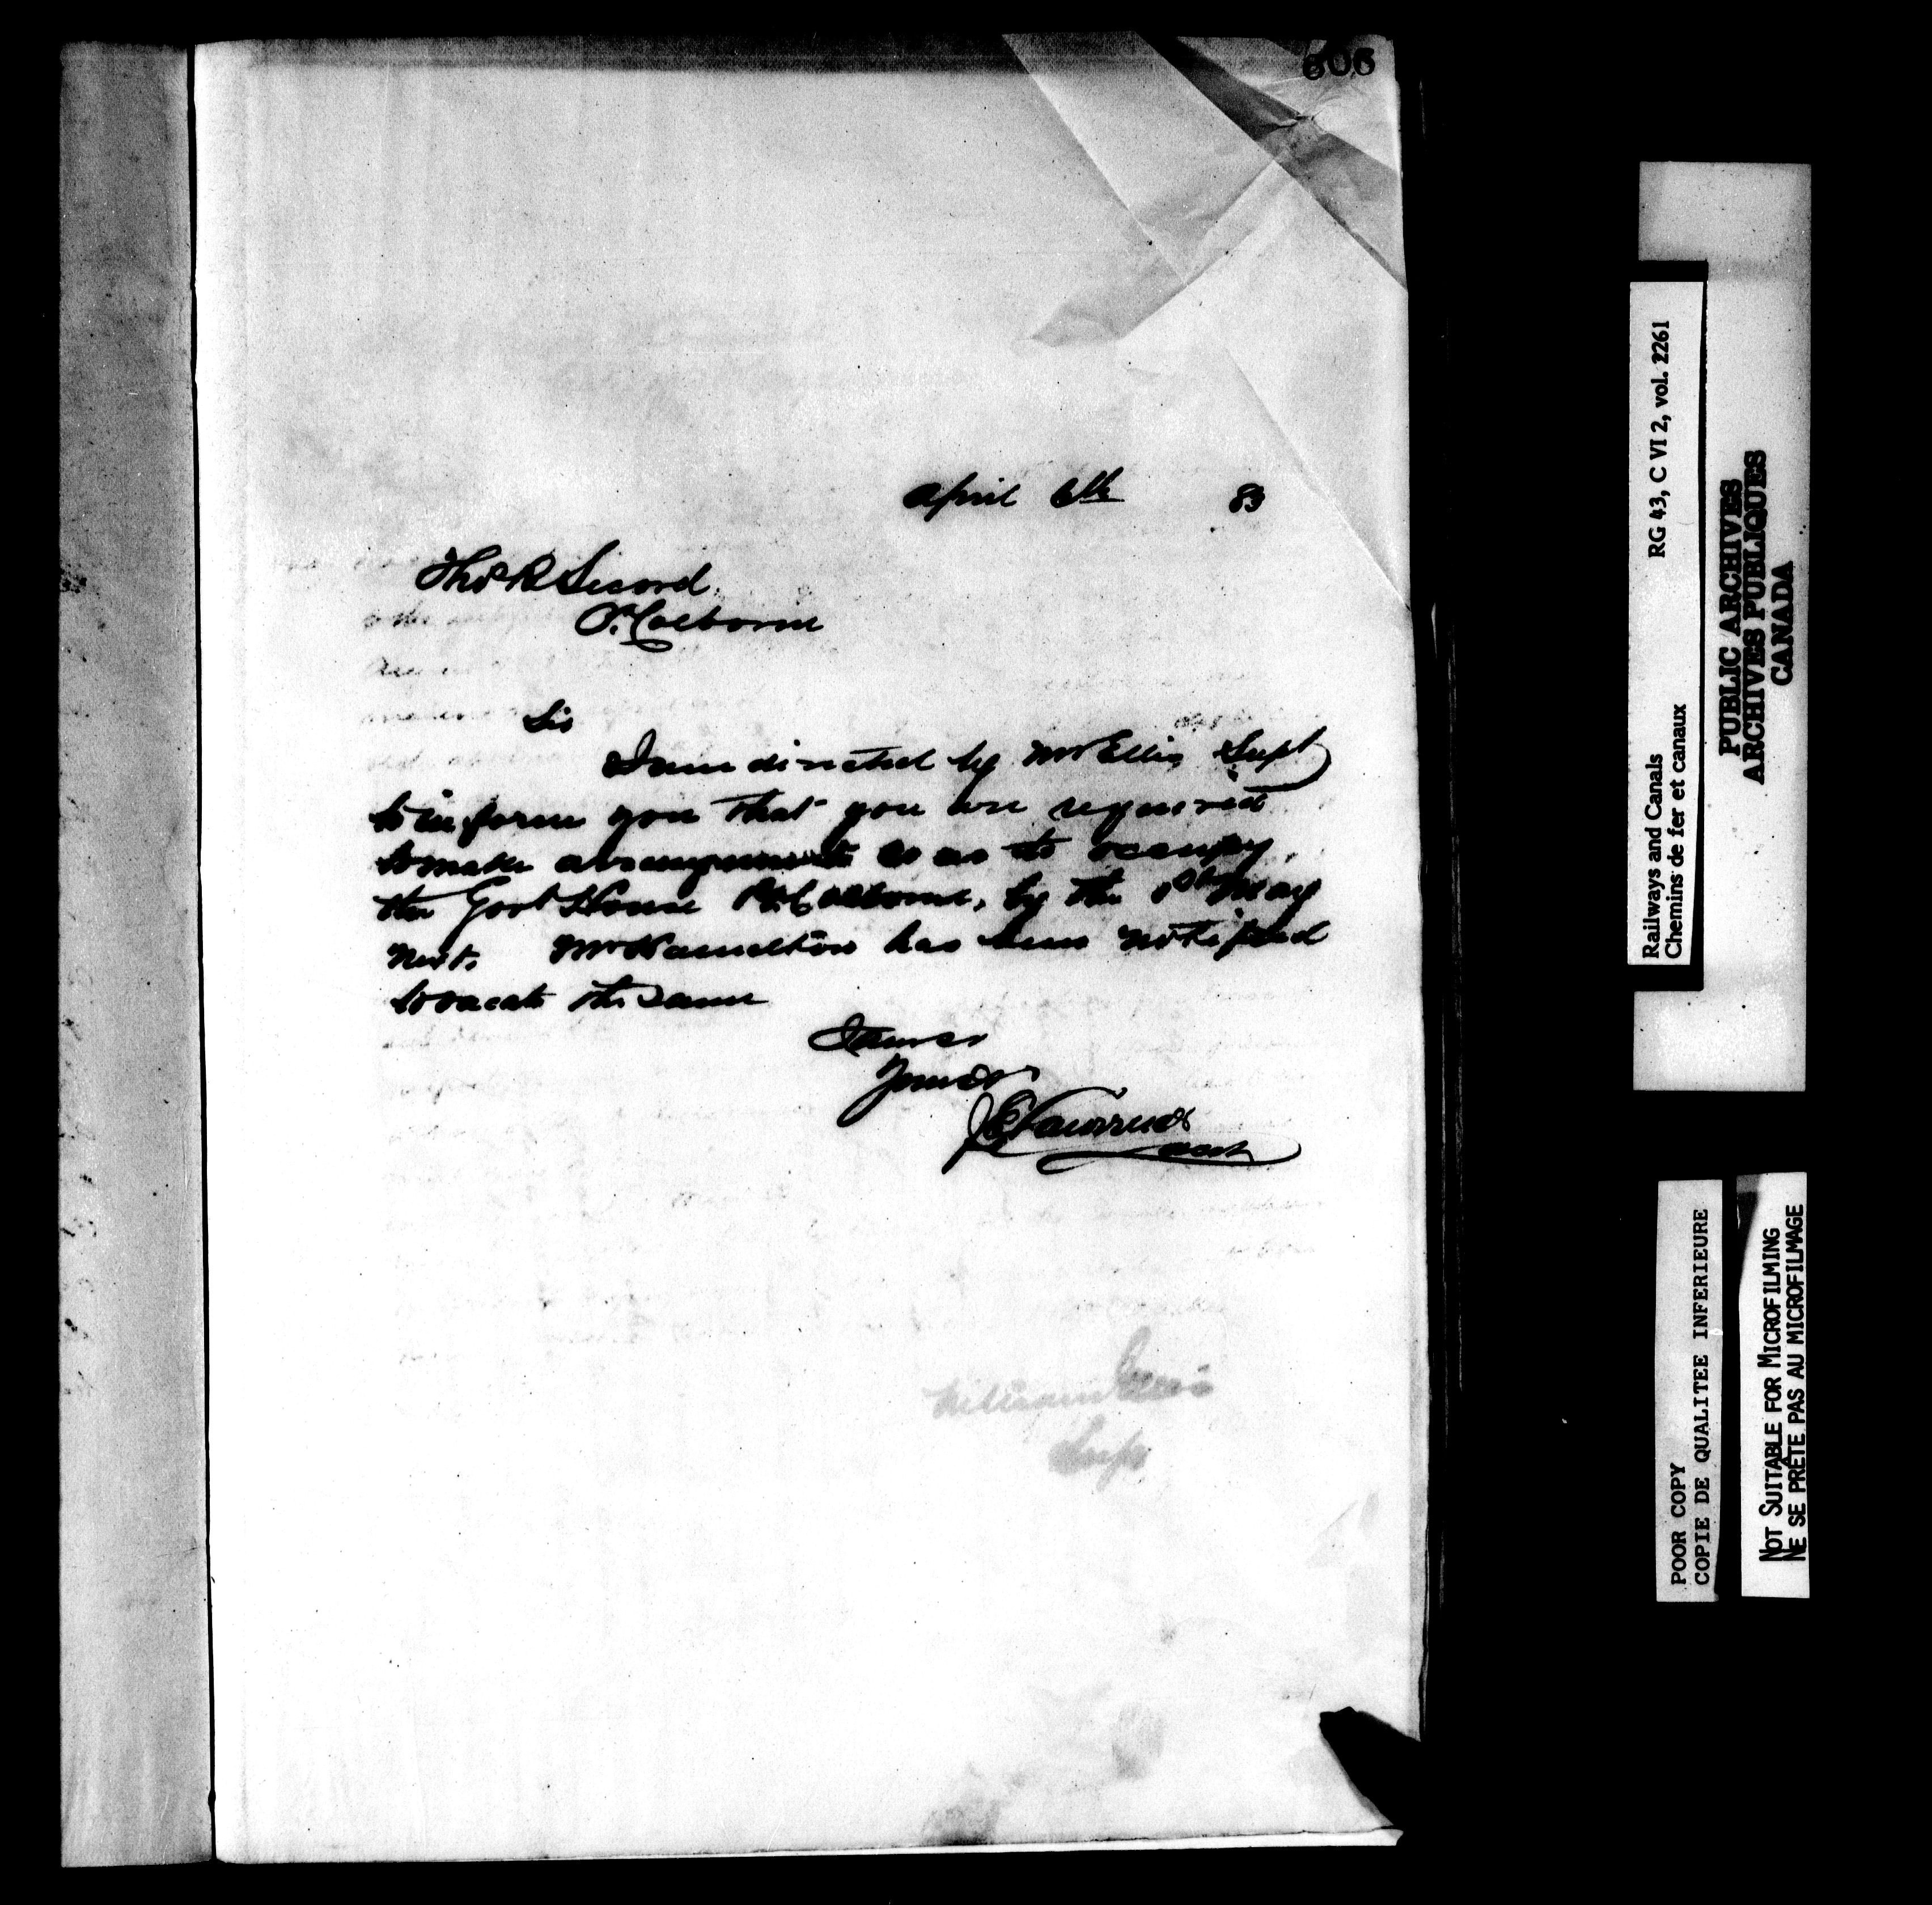 606
April 6th 83
Thos R Secord
Pt Colborne
Sir
I am directed by Mr Ellis Supt
to inform you that you are required
to make arrangements so as to occupy
the Govt House Pt Colborne, by the 1st May
next. Mr Hamilton has been notified
to vacate the same
Yours
William Ellis
Supt
Railways and Canals RG 43, C VI 2, vol. 2261
Chemins de fer et canaux
PUBLIC ARCHIVES
ARCHIVES PUBLIQUES
CANADA
POOR COPY
COPIE DE QUALITEE INFERIEURE
NOT SUITABLE FOR MICROFILMING
NE SE PRÊTE PAS AU MICROFILMAGE